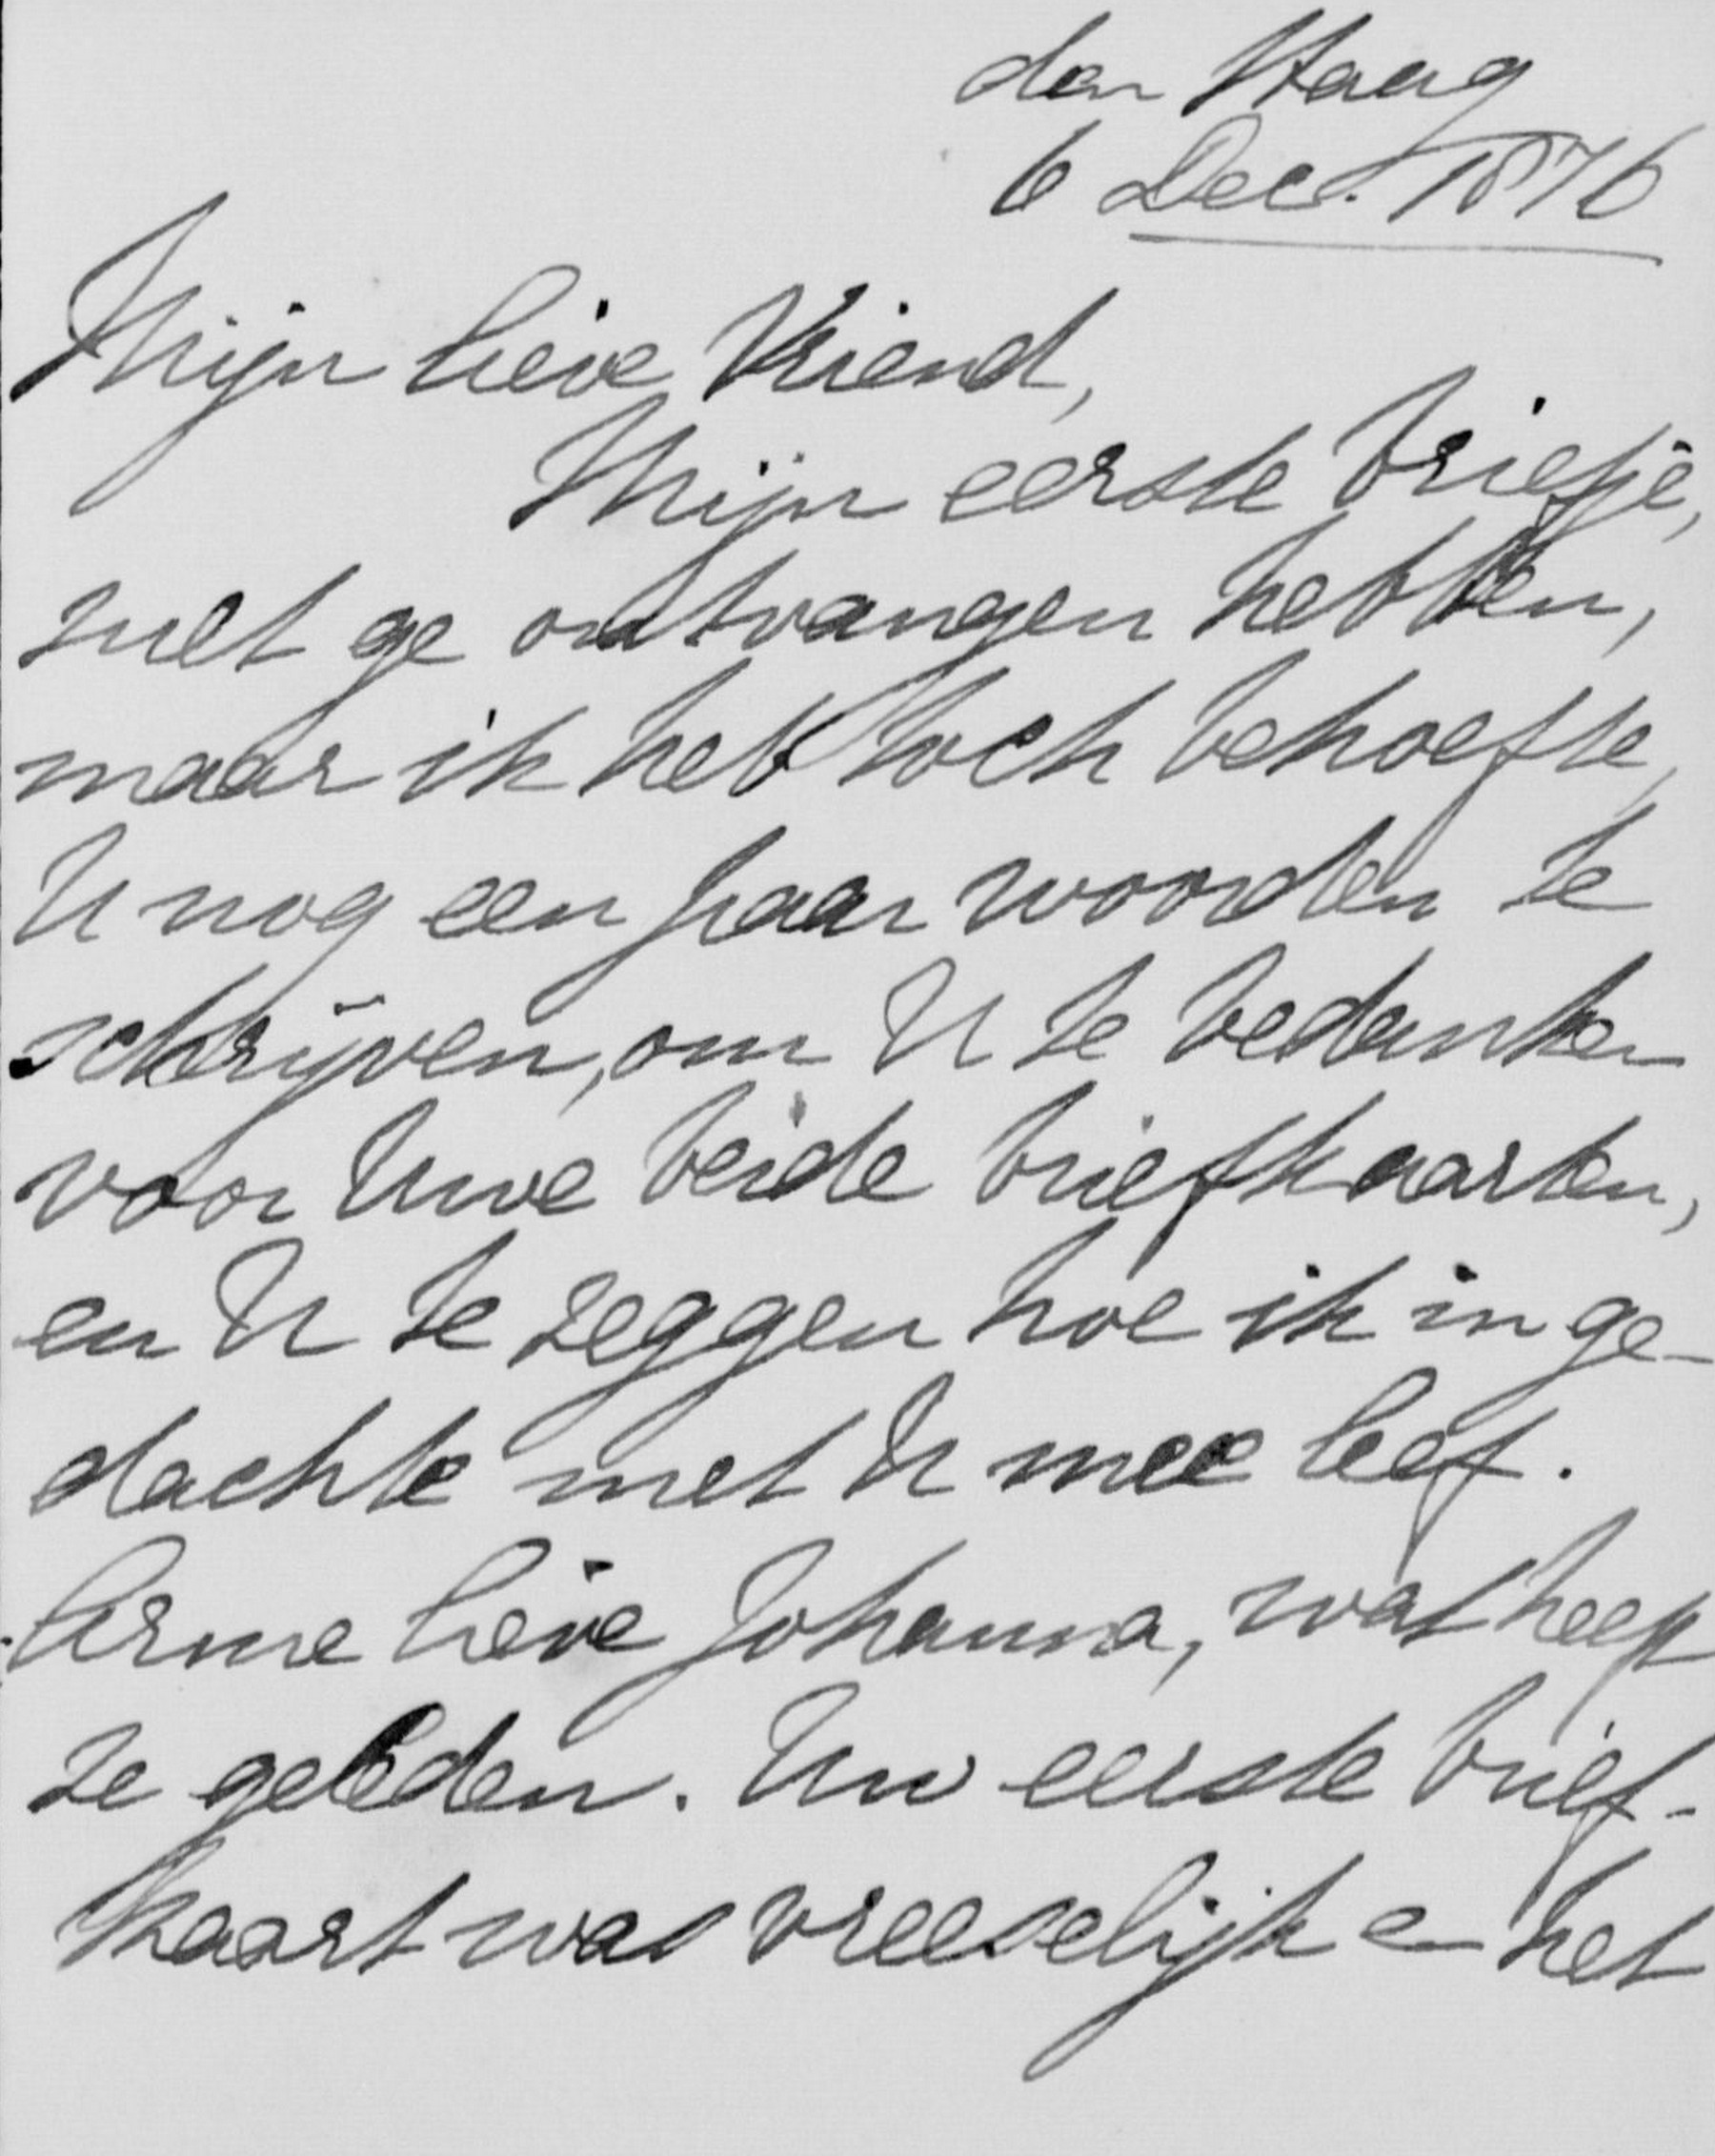 den Haag
6 Dec. 1876
Mijn lieve Vriend,
Mijn eerste briefje,
zult ge ontvangen hebben,
maar ik heb toch behoefte,
U nog een paar woorden te
schrijven, om U te bedanken
voor Uwe beide briefkaarten,
en U te zeggen hoe ik in ge-
dachte met U mee leef.
Arme lieve Johanna, wat heeft
ze geleden. Uw eerste brief-
kaart was vreeselijk en het